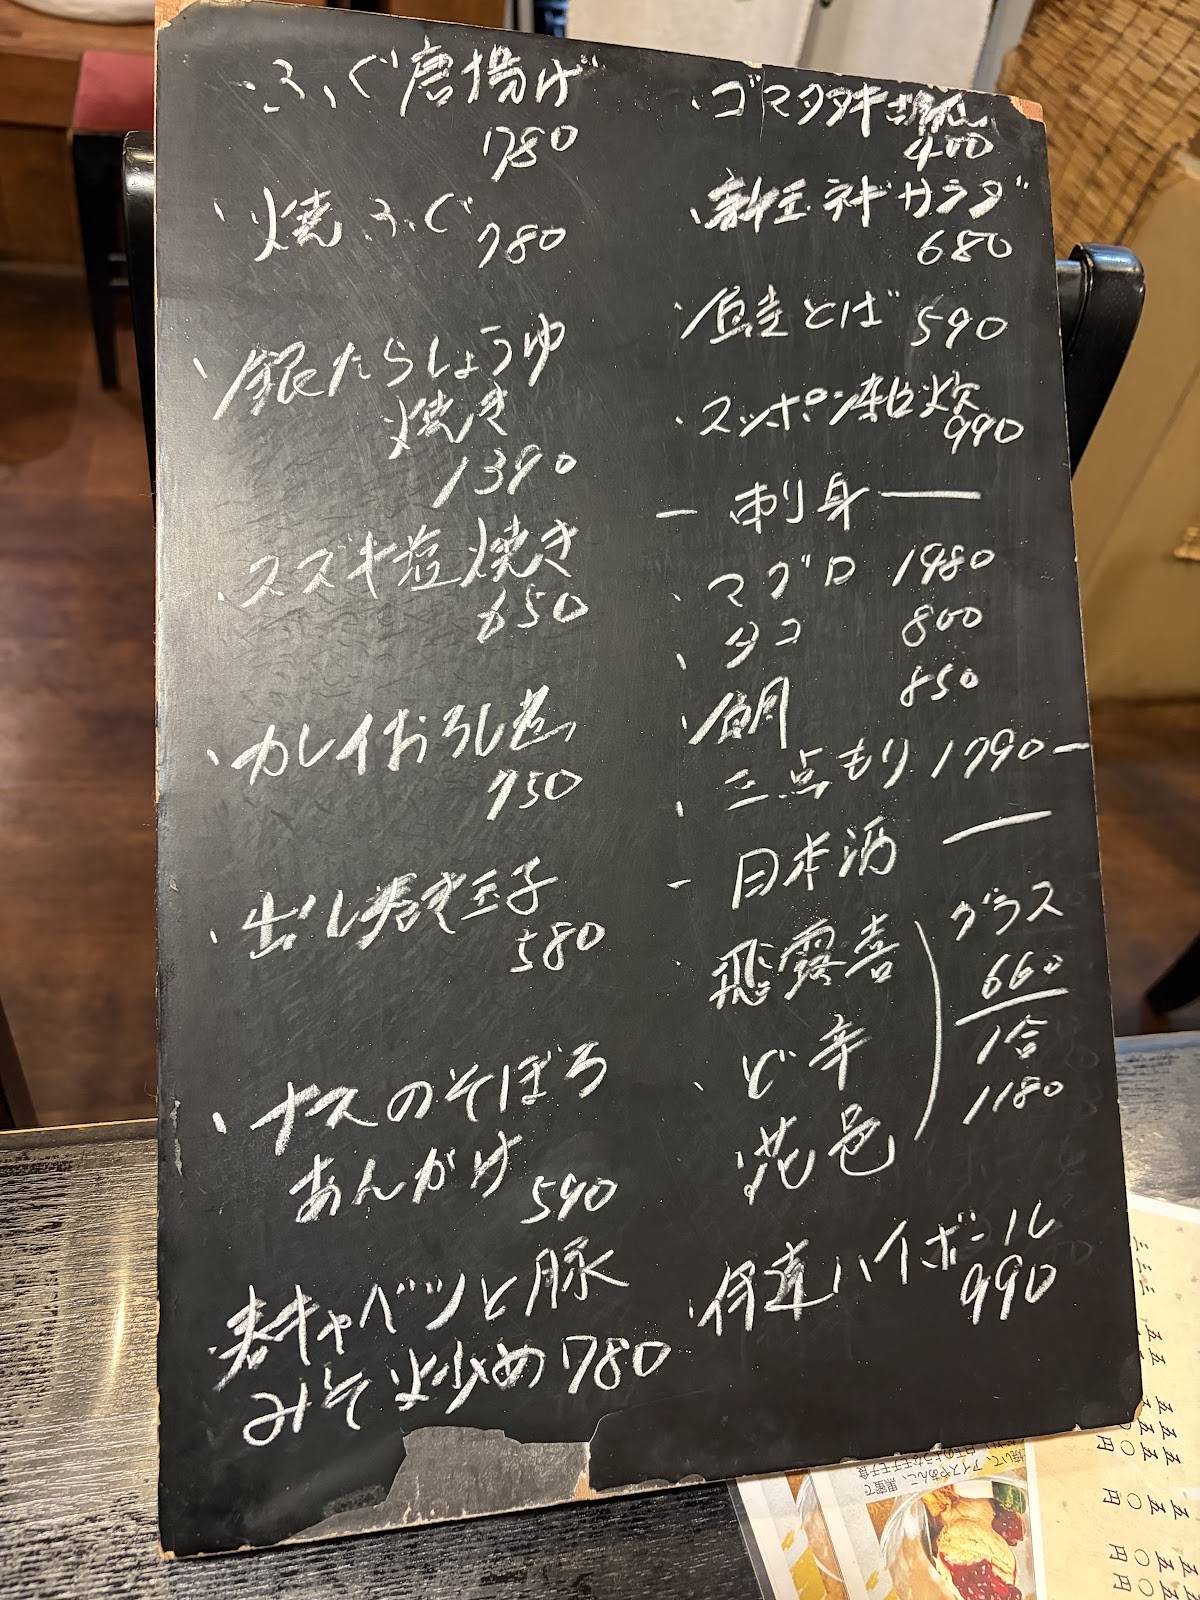 ・ふぐ唐揚げ
780
・焼ふぐ 780
・銀たらしょうゆ
焼き
1390
・スズキ塩焼き
650
・カレイおろし煮
750
・出し巻き玉子
580
・ナスのそぼろ
あんかけ 590
・春キャベツと豚
みそ炒め 780
・ゴマタタキ胡瓜
400
・新玉ネギサラダ
680
・鮭とば 590
・スッポン雑炊
990
ー 刺身 ー
・マグロ 1980
・タコ 800
・鯛 850
・三点もり 1790 ー
ー 日本酒 ー
・飛露喜
・ど辛
・花邑
グラス
660
1合
1180
・伊達ハイボール
990